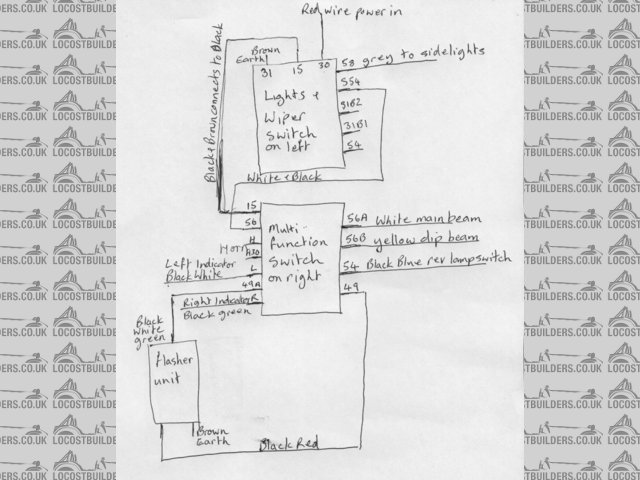 Red wire power in
Brown
Earth
31 15 30
58 grey to sidelights
554
Lights +
Wiper
Switch
on left
31B2
31B1
54
Black + Brown connects to Black
White + Black
15
56
H
Horn
H30
Multi-
function
Switch
on right
56A White main beam
56B yellow dip beam
54 Black Blue rev lamp switch
49
Left Indicator
Black White
L
49A
Right Indicator R
Black green
Black
White
green
flasher
unit
Brown
Earth
Black Red
LOCOSTBUILDERS.CO.UK